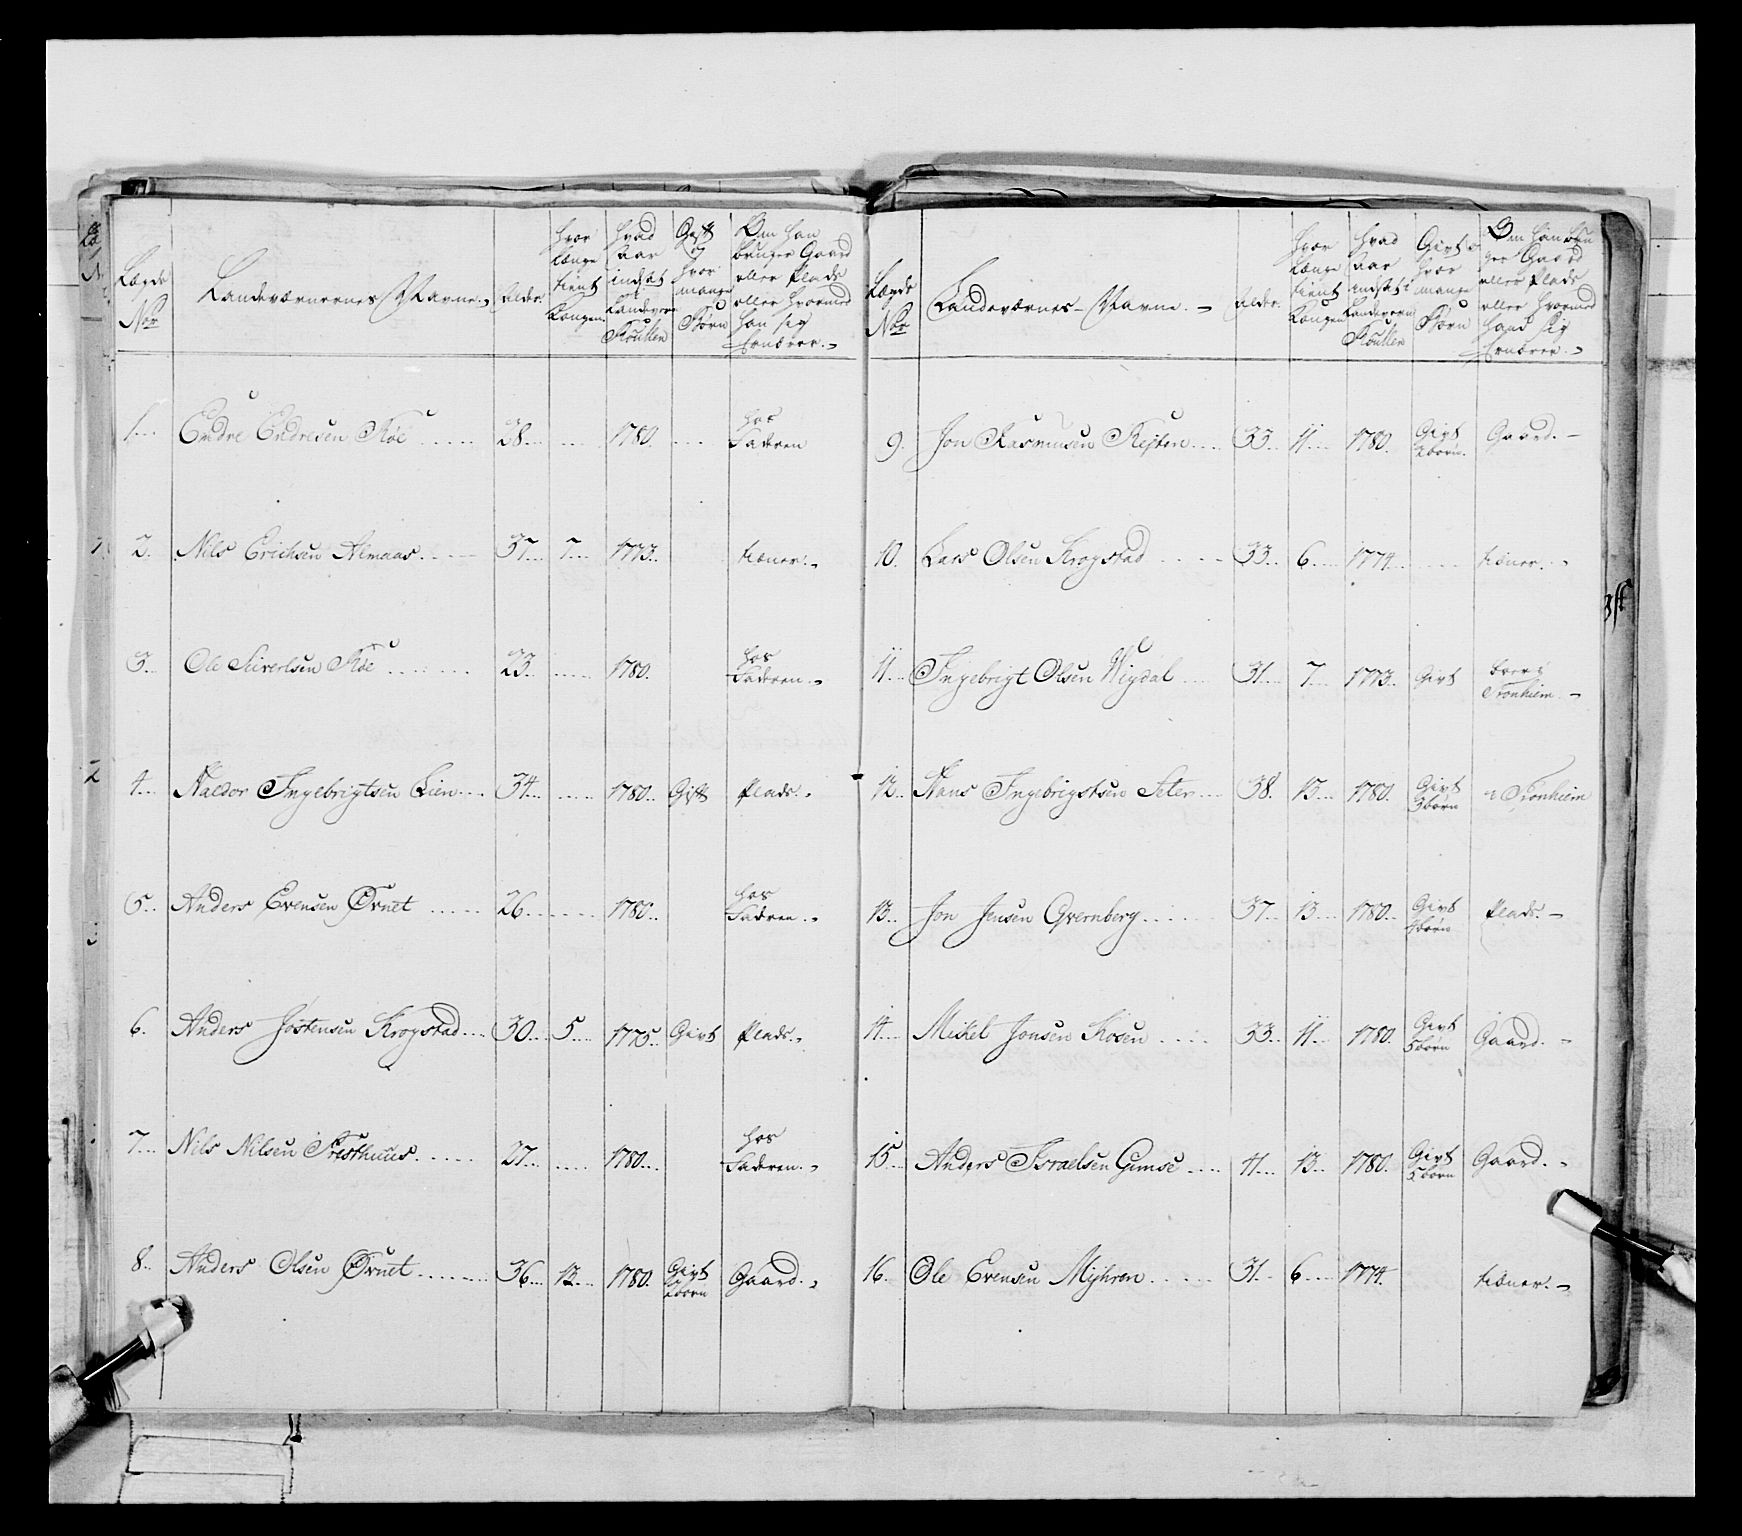 Lægds No
Landeværnernes Navne
Alder
hvor længe tient Kongen
hvad aar indsat i Landevern Roullen
Gift og hvor mange Børn
Om han bruger Gaard eller Plads eller hvormed han sig ernærer
1 Endre Endresen Røe 28 1780 hos Faderen
2 Nils Erichsen Almaas 37 7 1773 tiener
3 Ole Siverlsen Røe 23 1780 hos Faderen
4 Haldor Ingebrigtsen Lien 34 1780 Gift Plads
5 Anders Evensen Øvnet 26 1780 hos Faderen
6 Anders Jostensen Krogstad 30 5 1775 Givt Plads
7 Nils Nilsen Presthuus 27 1780 hos Faderen
8 Anders Olsen Øvnet 36 13 1780 Givt 2 børn Gaard
Lægds No
Landeværnes Navne
Alder
hvor længe tient Kongen
hvad aar indsat i Landevern Roullen
Givt hvor mange Børn
Om han bruger Gaard eller Plads eller hvormed hand sig ernærer
9 Jon Rasmusen 33 11 1780 Givt 2 børn Gaard
10 Lars Olsen Krogstad 33 6 1774 tiener
11 Ingebrigt Olsen Wigdal 31 7 1773 Givt Tronhiem
12 Hans Ingebrigtsen Seter 38 13 1780 Givt 3 børn i Tronhiem
13 Jon Jensen Qvernberg 37 13 1780 Givt 4 børn Plads
14 Mikel Jonsen Kosen 33 11 1780 Givt 5 børn Gaard
15 Anders Israelsen Gimse 41 13 1780 Givt 5 børn Gaard
16 Ole Evensen Myhren 31 6 1774 tiener